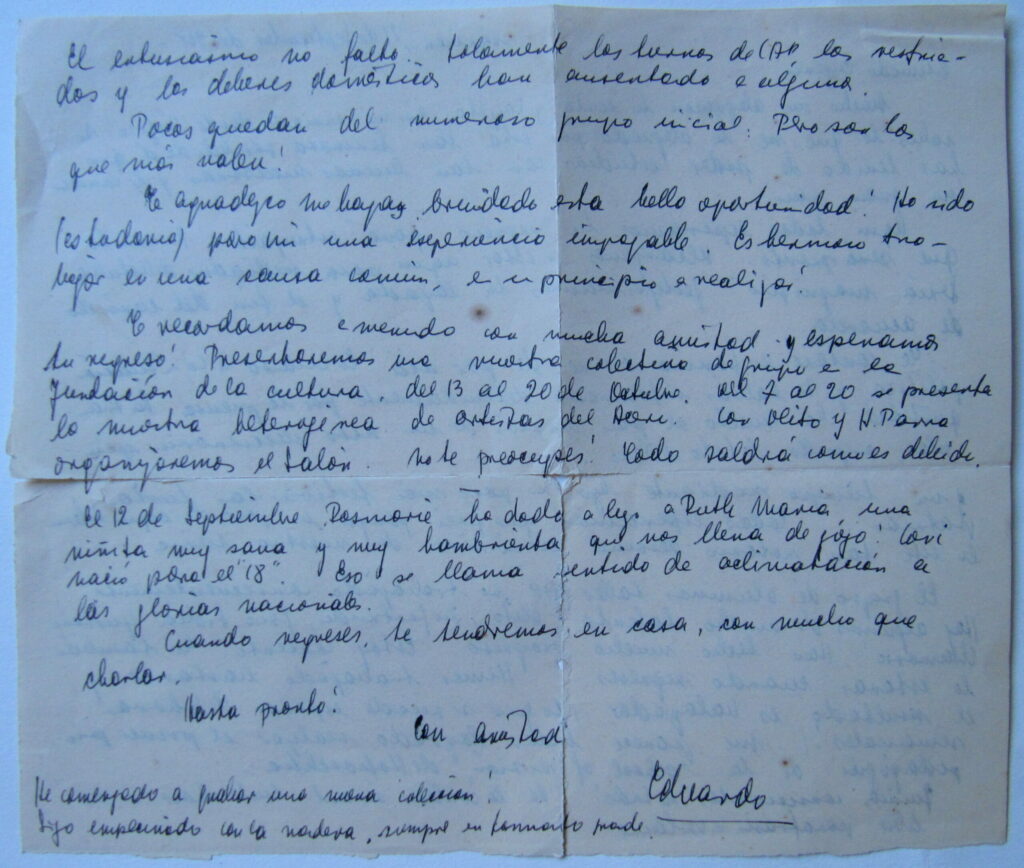 El entusiasmo no faltó. Solamente los turnos de los resfria-
dos y los deberes domésticos han ausentado a alguna.
Pocos quedan del numeroso grupo inicial. Pero son los
que más valen!
Te agradezco me hayas brindado esta bella oportunidad! Ha sido
(es todavía) para mí una experiencia impagable. Es hermoso tra-
bajar en una causa común, en principio a realizar!
Te recordamos a menudo con mucha amistad y esperamos
tu regreso! Presentaremos una muestra colectiva de grupo en la
Fundación de la cultura, del 13 al 20 de Octubre. Del 7 al 20 se presenta
la muestra heterogénea de artistas del. Con Olito y H. Parra
organizaremos el Salón. No te preocupes! Todo saldrá como es debido.
El 12 de Septiembre, Rosmarie ha dado a luz a Ruth María, una
niñita muy sana y muy hambrienta que nos llena de gozo! Casi
nació para el "18". Eso se llama sentido de aclimatación a
las glorias nacionales.
Cuando regreses, te tendremos en casa, con mucho que
charlar.
Hasta pronto!
Con amistad
Eduardo
He comenzado a grabar una nueva colección.
Sigo empecinado con la madera, siempre en formato grande.